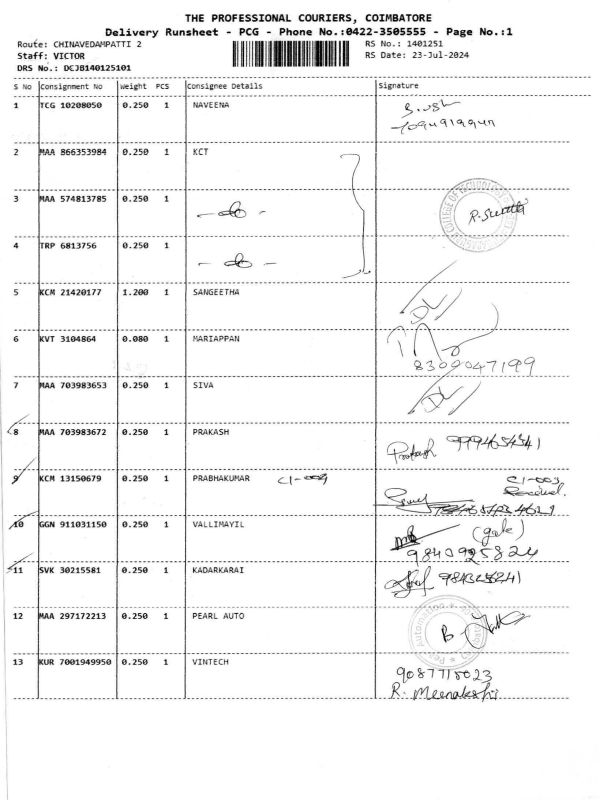 THE PROFESSIONAL COURIERS, COIMBATORE
Delivery Runsheet - PCG - Phone No.:0422-3505555 - Page No.:1
Route: CHINAVEDAMPATTI 2 RS No.: 1401251
Staff: VICTOR RS Date: 23-Jul-2024
DRS No.: DCJB140125101
S No Consignment No Weight PCS Consignee Details Signature
1 TCG 10208050 0.250 1 NAVEENA
2 MAA 866353984 0.250 1 KCT
3 MAA 574813785 0.250 1 -do-
R. Sumathi
4 TRP 6813756 0.250 1 -do-
5 KCM 21420177 1.200 1 SANGEETHA DL
6 KVT 3104864 0.080 1 MARIAPPAN
8300047199
7 MAA 703983653 0.250 1 SIVA DL
8 MAA 703983672 0.250 1 PRAKASH
Prakash
9 KCM 13150679 0.250 1 PRABHAKUMAR C1-003 C1-003
Received.
10 GGN 911031150 0.250 1 VALLIMAYIL (gate)
9840925824
11 SVK 30215581 0.250 1 KADARKARAI
12 MAA 297172213 0.250 1 PEARL AUTO
13 KUR 7001949950 0.250 1 VINTECH
R. Meenakshi